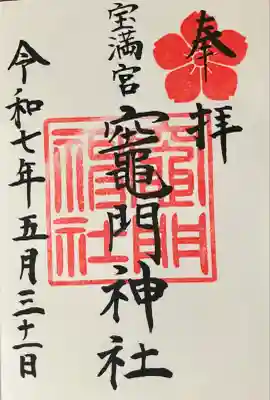 奉拝
宝満宮
竈門神社
令和七年五月三十一日
竈門神社